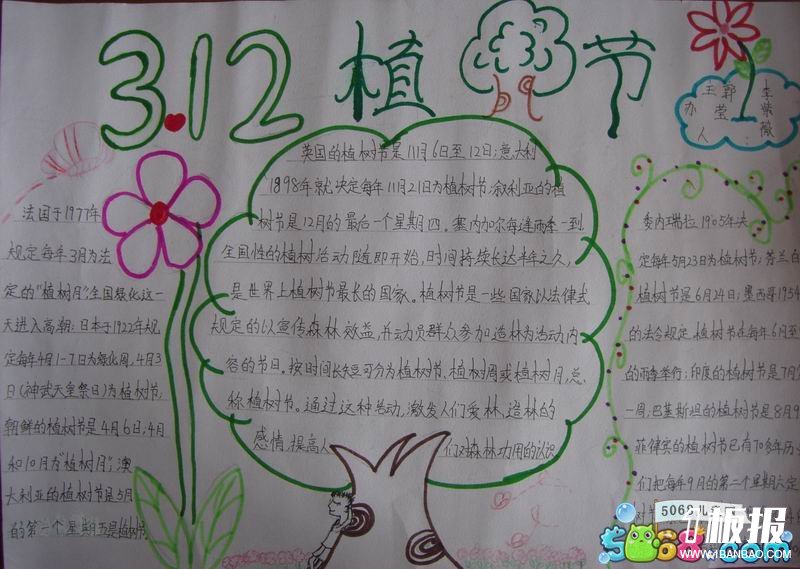 3.12 植树节
王郭李
莹紫
办薇
人:
法国于1977年
规定每年3月为法
定的"植树月",全国绿化这一
天进入高潮;日本于1922年规
定每年4月1-7日为绿化周,4月3
日(神武天皇祭日)为植树节
朝鲜的植树节是4月6日;4月
和10月为"植树月";澳
大利亚的植树节是5月
的第一个星期五是植树节
英国的植树节是11月6日至12日;意大利
1898年就决定每年11月21日为植树节;叙利亚的植
树节是12月的最后一个星期四。塞内加尔每逢雨季一到,
全国性的植树活动随即开始,时间持续长达半年之久,
是世界上植树节最长的国家。植树节是一些国家以法律式
规定的以宣传森林效益,并动员群众参加造林为活动内
容的节日。按时间长短可分为植树节、植树周或植树月,总
称植树节。通过这种活动,激发人们爱林、造林的
感情,提高人们对森林功用的认识
委内瑞拉1905年决
定每年5月23日为植树节;芬兰自
植树节是6月24日;墨西哥1954
的法令规定,植树节在每年6月至
的雨季举行;印度的植树节是7月
一周;巴基斯坦的植树节是8月9
菲律宾的植树节已有70多年历
们把每年9月的第二个星期六定
5068儿
5068.com
1板报
WWW.1BANBAO.COM